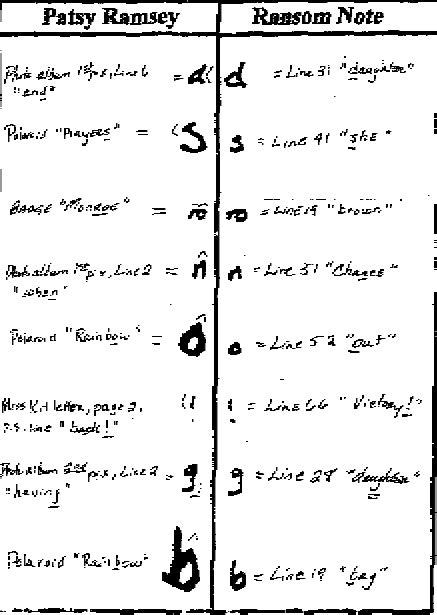 Patsy Ramsey Ransom Note
Photo album 1st pix, Line 6 = d d = Line 31 "daughter"
"end"
Polaroid "Prayers" = S s = Line 41 "she"
"Monroe" = o o = Line 19 "brown"
Photo album 1st pix, Line 2 = n n = Line 51 "Chance"
"when"
Polaroid "Rainbow" = o o = Line 52 "out"
Miss Kit letter, page 2, ! ! = Line 66 "Victory!"
P.S. line "back!"
Photo album 2nd pix, Line 2 = g g = "daughter"
"having"
Polaroid "Rainbow" b b = Line 19 "bag"